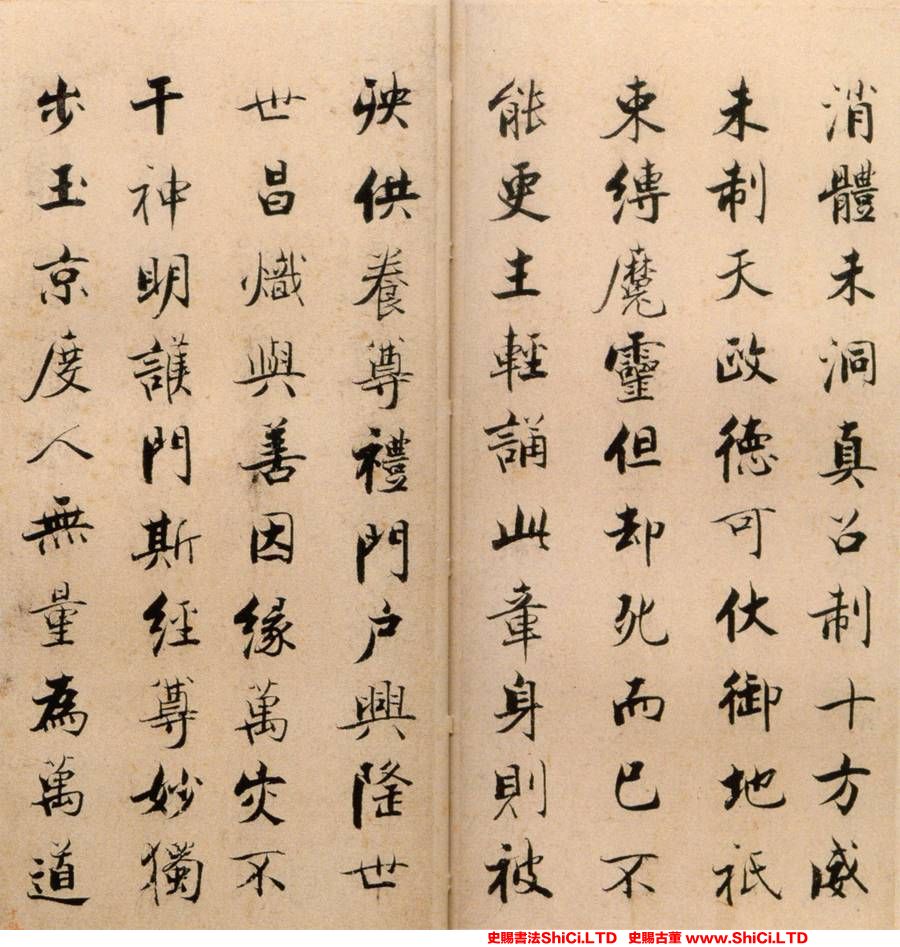 消體未洞真召制十方威
未制天政德可伏御地祇
束縛魔靈但却死而已不
能更生輕誦此章身則被
殃供養尊禮門户興隆世
世昌熾與善因緣萬灾不
干神明護門斯經尊妙獨
步玉京度人無量為萬道
史賜書法ShiCi.LTD 史賜古董 www.ShiCi.LTD